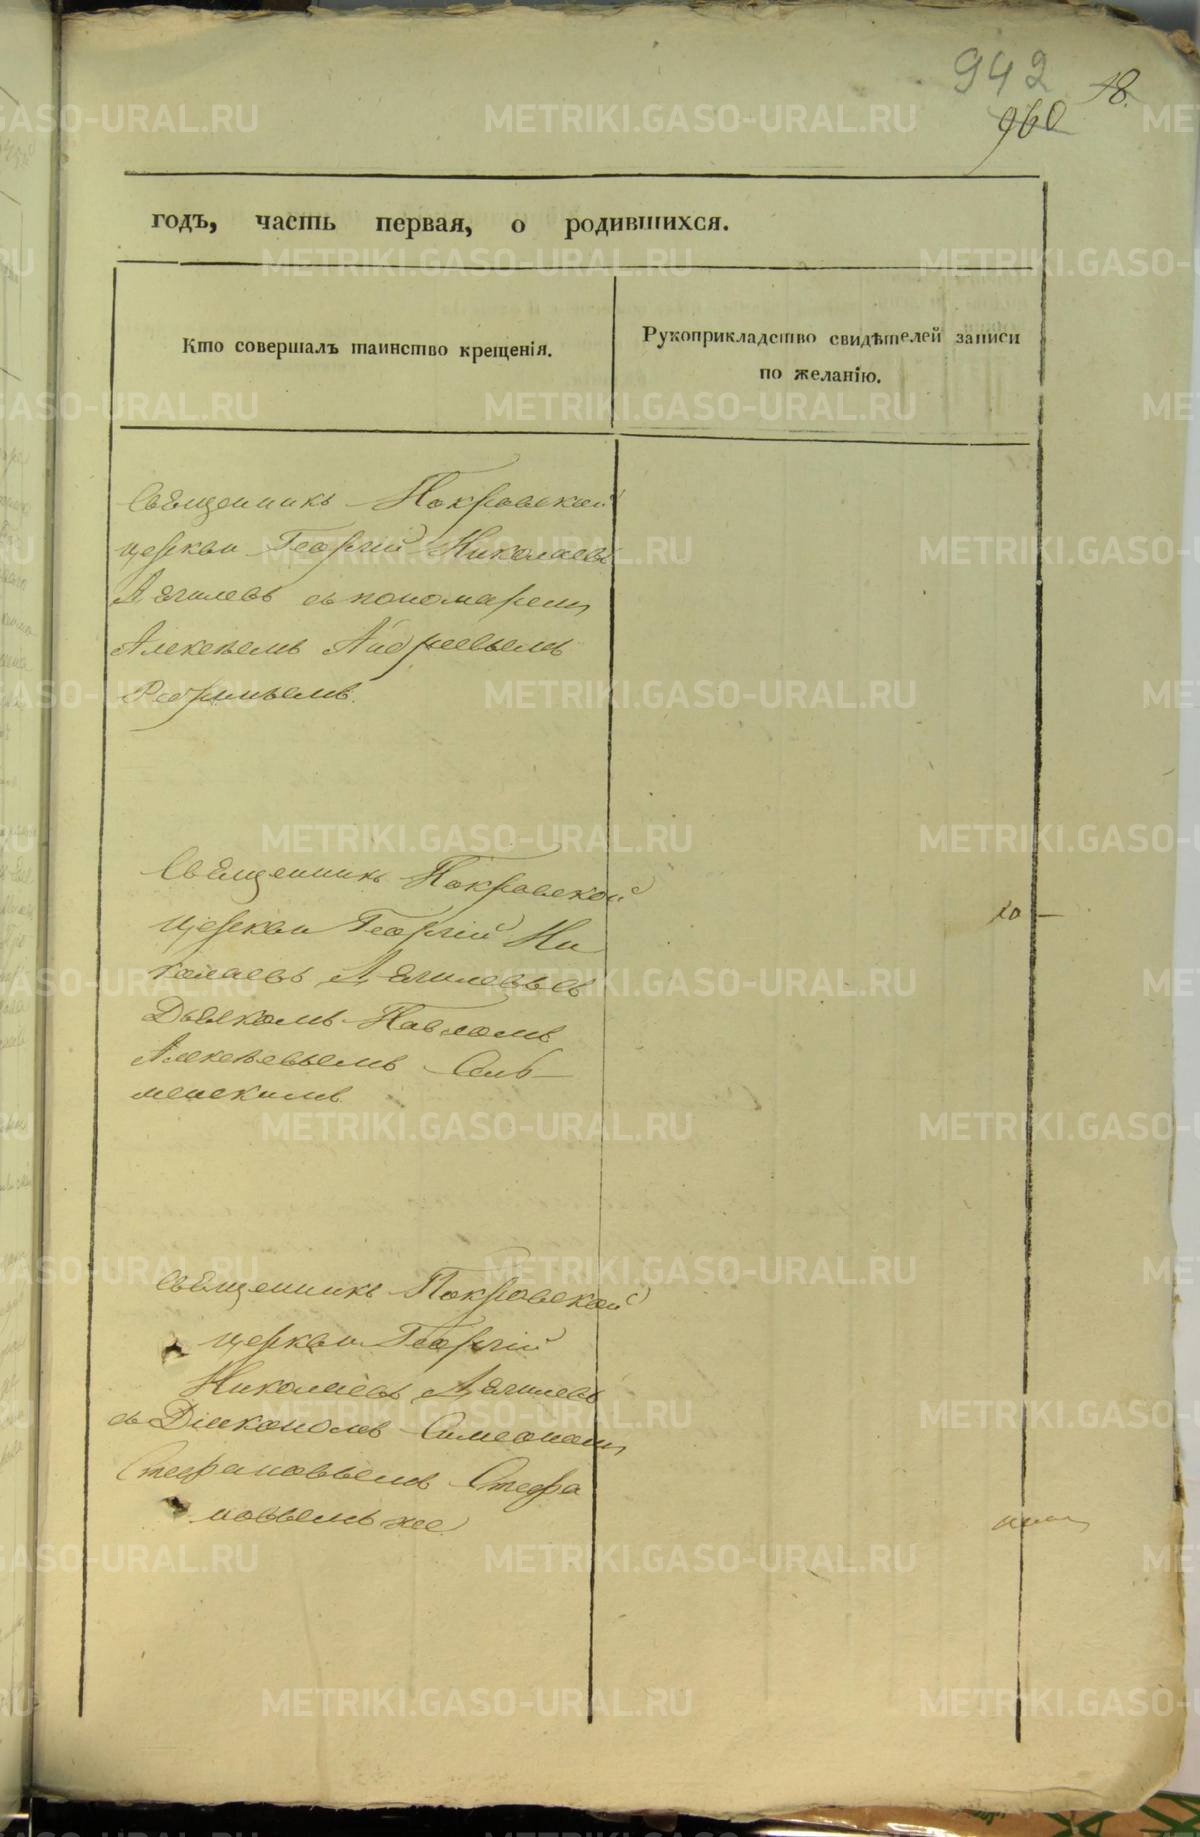 942
18.
960
годъ, часть первая, о родившихся.
Кто совершалъ таинство крещенія.
Рукоприкладство свидѣтелей записи
по желанію.
Священникъ Покровской
церкви Георгій Николаевъ
Дягилевъ съ пономаремъ
Алексѣемъ Андреевымъ
Священникъ Покровской
церкви Георгій Ни
колаевъ Дягилевъ съ
Дьякомъ Павломъ
Алексѣевымъ Сель
менскимъ
Священникъ Покровской
церкви Георгій
Николаевъ Дягилевъ
съ Діякономъ Симеономъ
Стефановымъ Стефа
новымъ же
METRIKI.GASO-URAL.RU